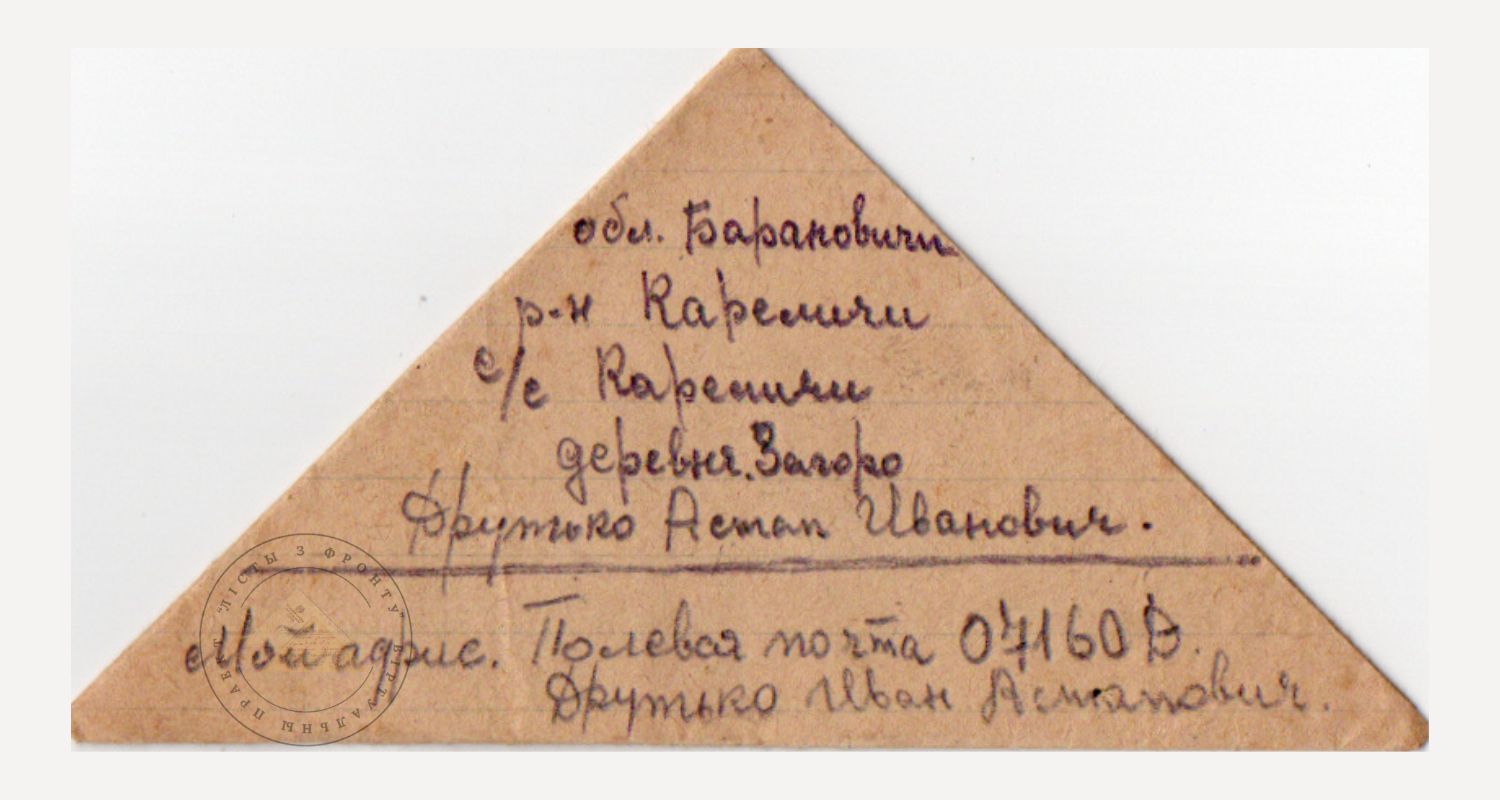 обл. Барановичи
р-н Каремичи
с/с Каремичи
деревня. Загоро
Друтько Астап Иванович.
Мой адрис. Полевая почта 07160 В.
Друтько Иван Астапович.
"ЛІСТЫ З ФРОНТУ"
ВІРТУАЛЬНЫ ПРАЕКТ